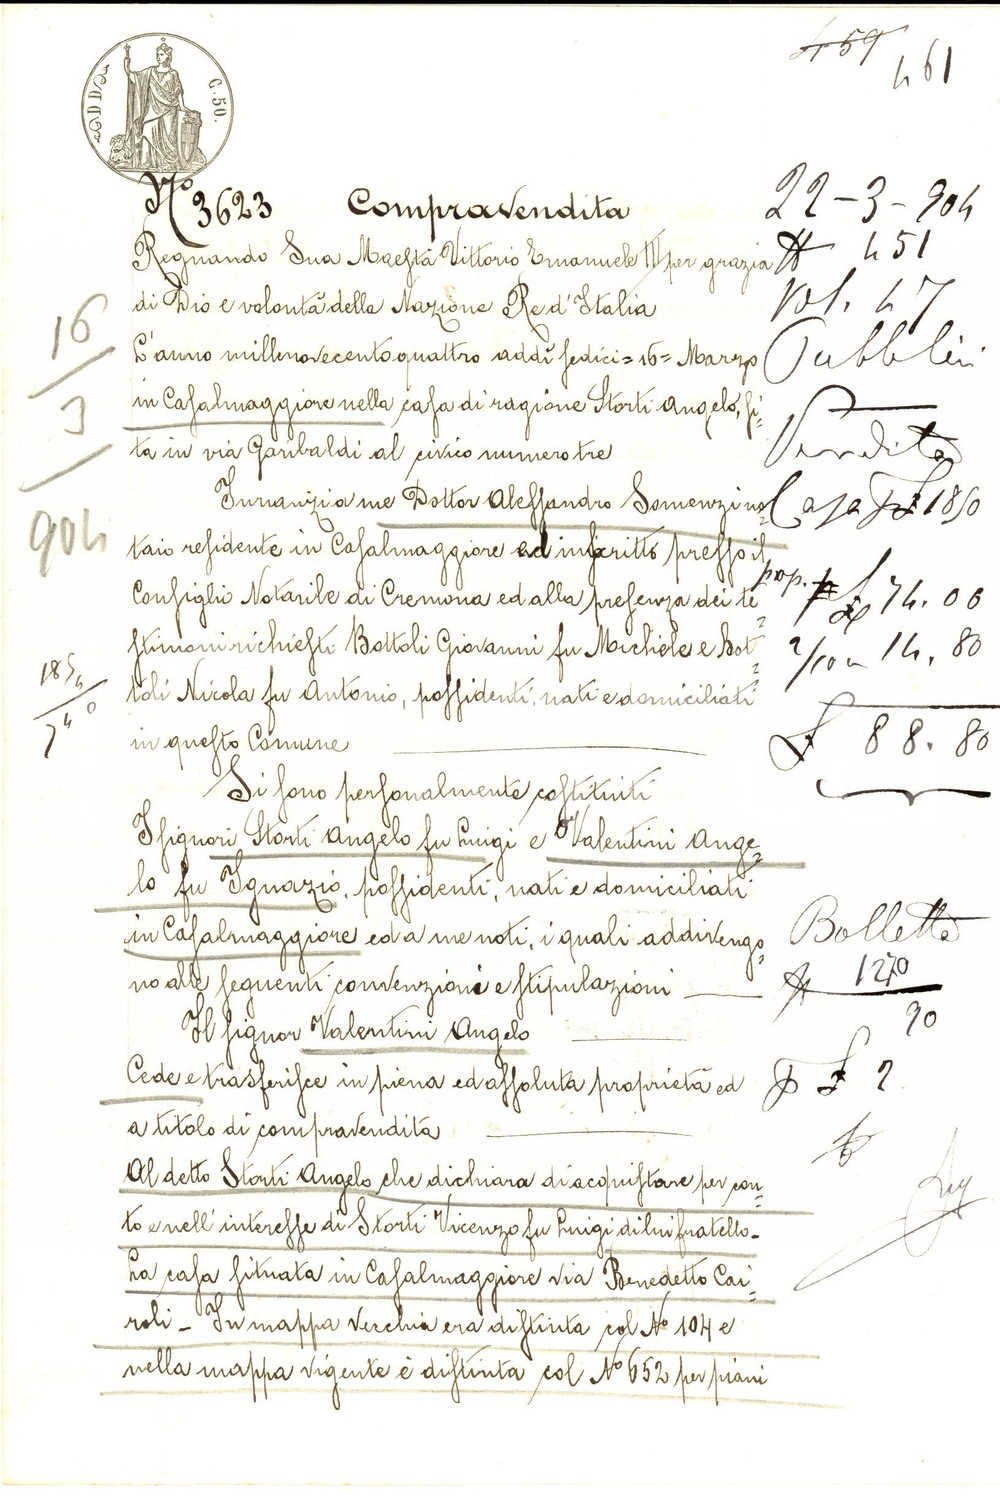 459
461
C. 50.
N.° 3623 Compravendita
22-3-904
Regnando Sua Maestà Vittorio Emanuele III per grazia
N 451
di Dio e volontà della Nazione Re d'Italia
vol. 47
16
L'anno millenovecentoquattro addì sedici = 16 = Marzo
Pubblici
3
in Casalmaggiore nella casa di ragione Storti Angelo, si=
904
ta in via Garibaldi al civico numero tre
Vendita
Innanzi a me Dottor Alessandro Somenzi no=
Casa £ 1850
taio residente in Casalmaggiore ed inscritto presso il
Consiglio Notarile di Cremona ed alla presenza dei te=
prop. £ 74.00
stimoni richiesti Bottoli Giovanni fu Michele e Bot=
2/10 14.80
1850
toli Nicola fu Antonio, possidenti, nati e domiciliati
740
in questo Comune
£ 88.80
Si sono personalmente costituiti
I signori Storti Angelo fu Luigi e Valentini Ange=
lo fu Ignazio, possidenti, nati e domiciliati
in Casalmaggiore ed a me noti, i quali addivengo=
Bolletta
no alle seguenti convenzioni e stipulazioni
N 1270
Il signor Valentini Angelo
90
Cede e trasferisce in piena ed assoluta proprietà ed
£ 2
a titolo di compravendita
Al detto Storti Angelo che dichiara di acquistare per con=
to e nell'interesse di Storti Vicenzo fu Luigi di lui fratello-
La casa situata in Casalmaggiore via Benedetto Cai=
roli - In mappa vecchia era distinta col N° 104 e
nella mappa vigente è distinta col N° 652 per piani